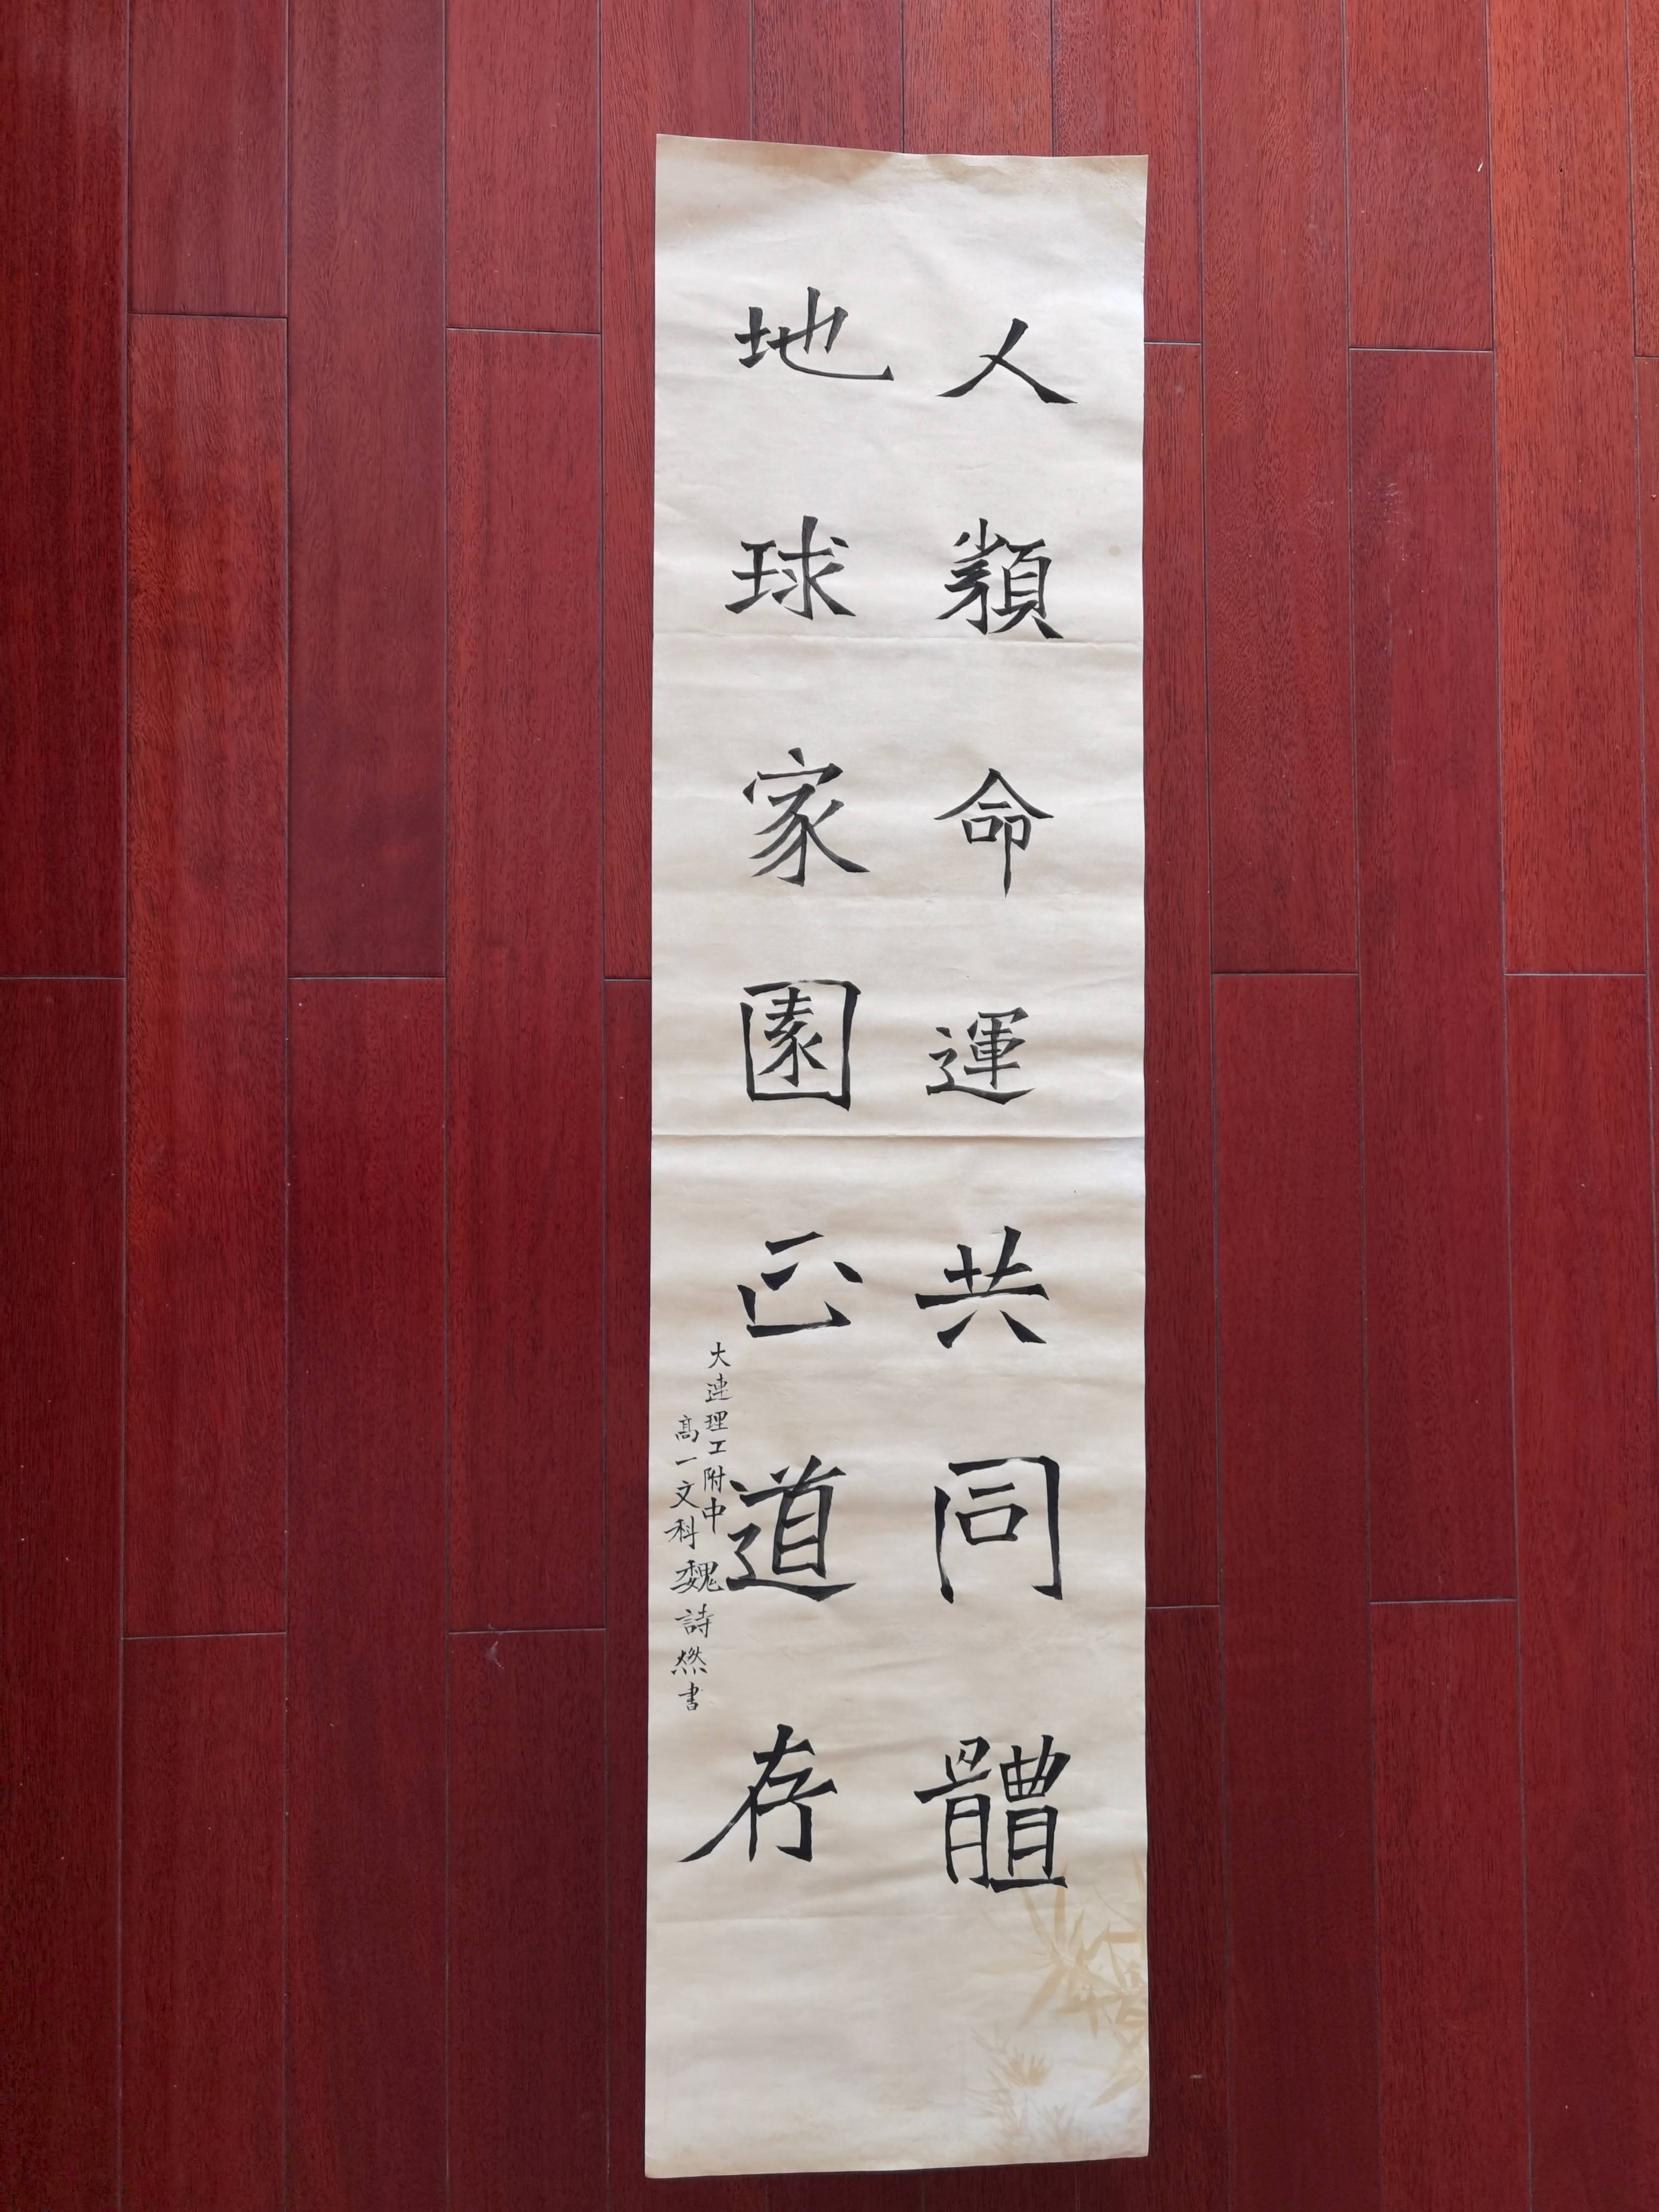 人類命運共同體
地球家園正道存
大連理工附中
高一文科魏詩燃書